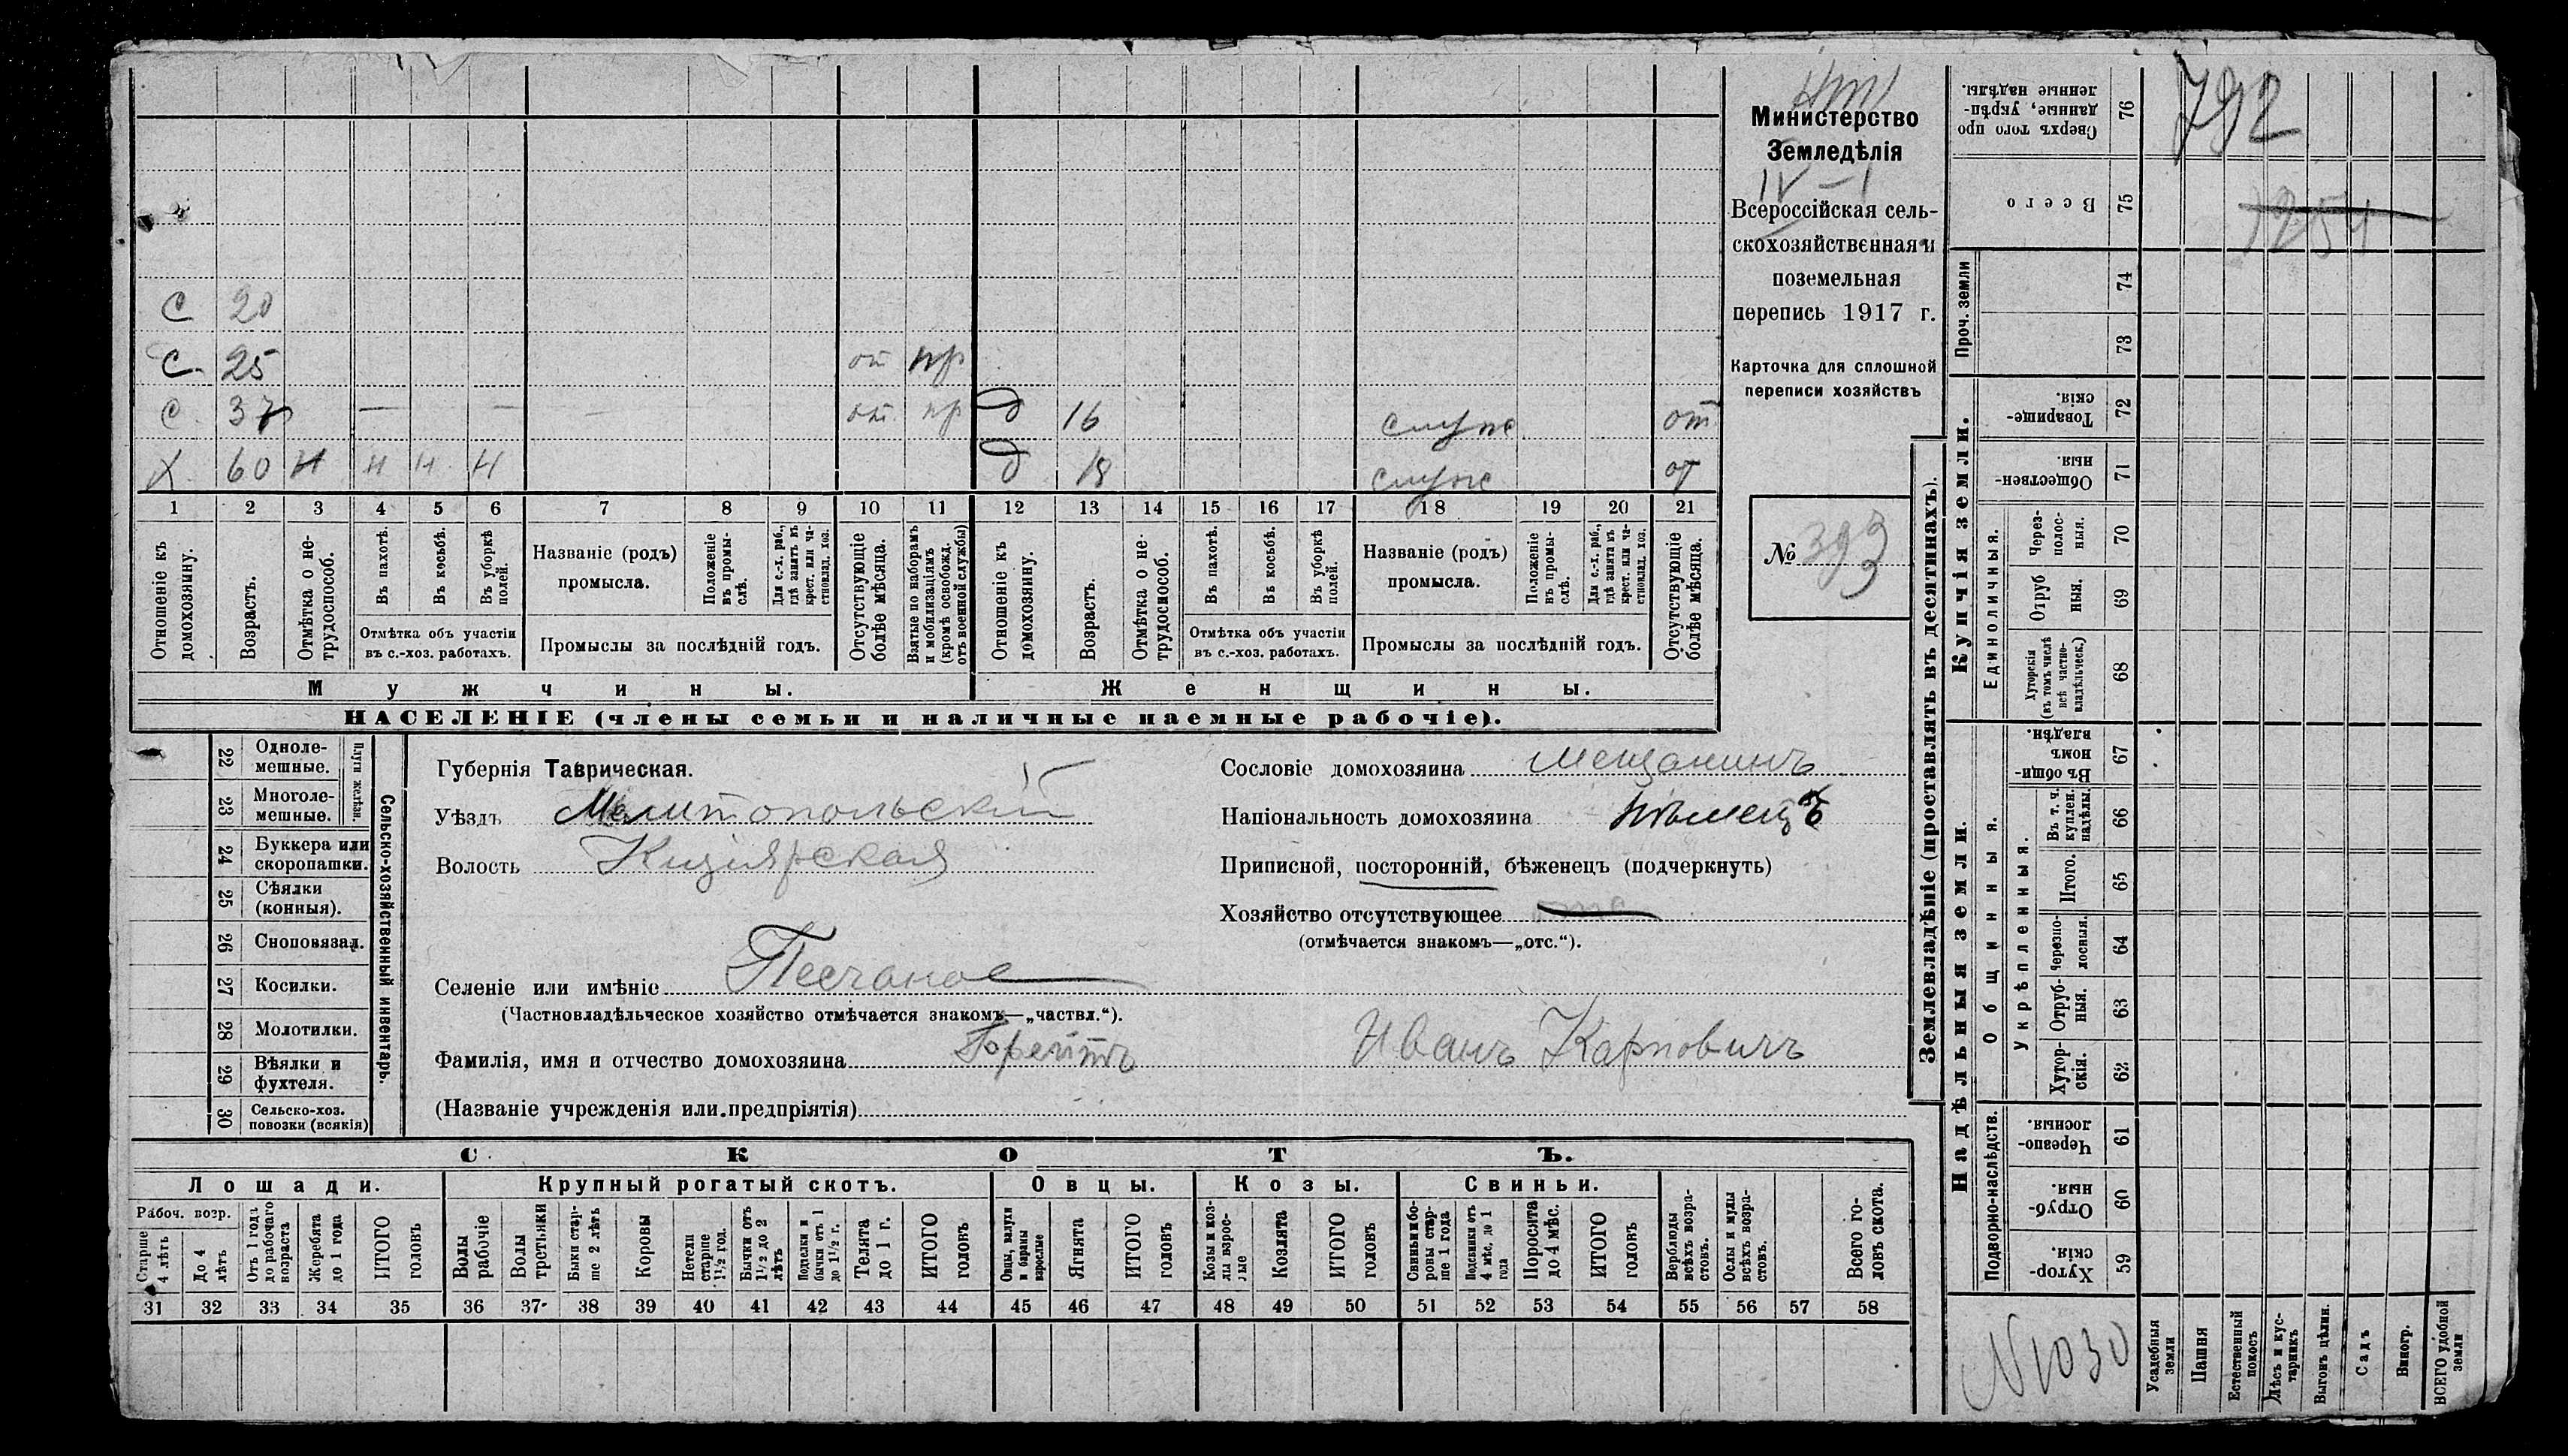 С 20
С. 25 от пр
С. 37 — — — от. пр д 16 служ от
Х 60 Н Н Н Н д 18 служ от
1 2 3 4 5 6 7 8 9 10 11 12 13 14 15 16 17 18 19 20 21
Отношеніе къ домохозяину.
Возрастъ.
Отмѣтка о не-трудоспособ.
Въ пахотѣ.
Въ косьбѣ.
Въ уборкѣ полей.
Отмѣтка объ участіи
въ с.-хоз. работахъ.
Названіе (родъ)
промысла.
Положеніе въ промы-слѣ.
Для с.-х. раб., гдѣ занятъ въ крест. или ча-стновлад. хоз.
Промыслы за послѣдній годъ.
Отсутствующіе болѣе мѣсяца.
Взятые по наборамъ и мобилизаціямъ (кромѣ освобожд. отъ военной службы)
Отношеніе къ домохозяину.
Возрастъ.
Отмѣтка о не-трудоспособ.
Въ пахотѣ.
Въ косьбѣ.
Въ уборкѣ полей.
Отмѣтка объ участіи
въ с.-хоз. работахъ.
Названіе (родъ)
промысла.
Положеніе въ промы-слѣ.
Для с.-х. раб., гдѣ занята въ крест. или ча-стновлад. хоз.
Промыслы за послѣдній годъ.
Отсутствующіе болѣе мѣсяца.
Мужчины.
Женщины.
НАСЕЛЕНІЕ (члены семьи и наличные наемные рабочіе).
Министерство
Земледѣлія
IV – I
Всероссійская сель-
скохозяйственная и
поземельная
перепись 1917 г.
Карточка для сплошной
переписи хозяйствъ
№ 393
22 Одноле-мешные.
23 Многоле-мешные.
Плуги желѣзн.
24 Буккера или скоропашки.
25 Сѣялки (конныя).
26 Сноповязал.
27 Косилки.
28 Молотилки.
29 Вѣялки и фухтеля.
30 Сельско-хоз. повозки (всякія)
Сельско-хозяйственный инвентарь.
Губернія Таврическая.
Уѣздъ Мелитопольскій
Волость Кизіярская
Селеніе или имѣніе Песчаное
(Частновладѣльческое хозяйство отмѣчается знакомъ—„частвл.“).
Фамилія, имя и отчество домохозяина Иванъ Карповичъ
(Названіе учрежденія или предпріятія)
Сословіе домохозяина Мещанинъ
Національность домохозяина Нѣмецъ
Приписной, посторонній, бѣженецъ (подчеркнуть)
Хозяйство отсутствующее
(отмѣчается знакомъ—„отс.“).
СКОТЪ.
Лошади.
Крупный рогатый скотъ.
Овцы.
Козы.
Свиньи.
Рабоч. возр.
Старше 4 лѣтъ
До 4 лѣтъ
Отъ 1 года до рабочаго возраста
Жеребята до 1 года
ИТОГО головъ
Волы рабочіе
Волы третьяки
Быки стар-ше 2 лѣтъ
Коровы
Нетели старше 1½ год.
Бычки отъ 1½ до 2 лѣтъ
Подтелки и бычки отъ 1 до 1½ г.
Телята до 1 г.
ИТОГО головъ
Овцы, валухи и бараны взрослые
Ягнята
ИТОГО головъ
Козы и коз-лы взрос-лые
Козлята
ИТОГО головъ
Свиньи и бо-ровы стар-ше 1 года
Подсвинки отъ 4 мѣс. до 1 года
Поросята до 4 мѣс.
ИТОГО головъ
Верблюды всѣхъ возра-стовъ.
Ослы и мулы всѣхъ возра-стовъ.
Всего го-ловъ скота.
31 32 33 34 35 36 37 38 39 40 41 42 43 44 45 46 47 48 49 50 51 52 53 54 55 56 57 58
Землевладѣніе (проставлять въ десятинахъ).
Сверхъ того про-данные, укрѣп-ленные надѣлы. 76
792
Всего 75
1254
Проч. земли
74
73
Купчія земли.
Товарище-скія. 72
Обществен-ныя. 71
Единоличныя.
Через-полос-ныя. 70
Отруб-ныя. 69
Хуторскія (въ томъ числѣ всѣ частно-владѣльческ.) 68
Надѣльныя земли.
Общинныя.
Въ общи-номъ владѣн. 67
Укрѣпленныя.
Въ т. ч. куплен. надѣлы. 66
Итого. 65
Черезпо-лосныя. 64
Отруб-ныя. 63
Хутор-скія. 62
Подворно-наслѣдств.
Черезпо-лосныя. 61
Отруб-ныя. 60
Хутор-скія. 59
N1030
Усадебныя земли
Пашня
Естественный покосъ
Лѣсъ и кус-тарникъ
Выгонъ цѣлин.
Садъ
Виногр.
ВСЕГО удобной земли